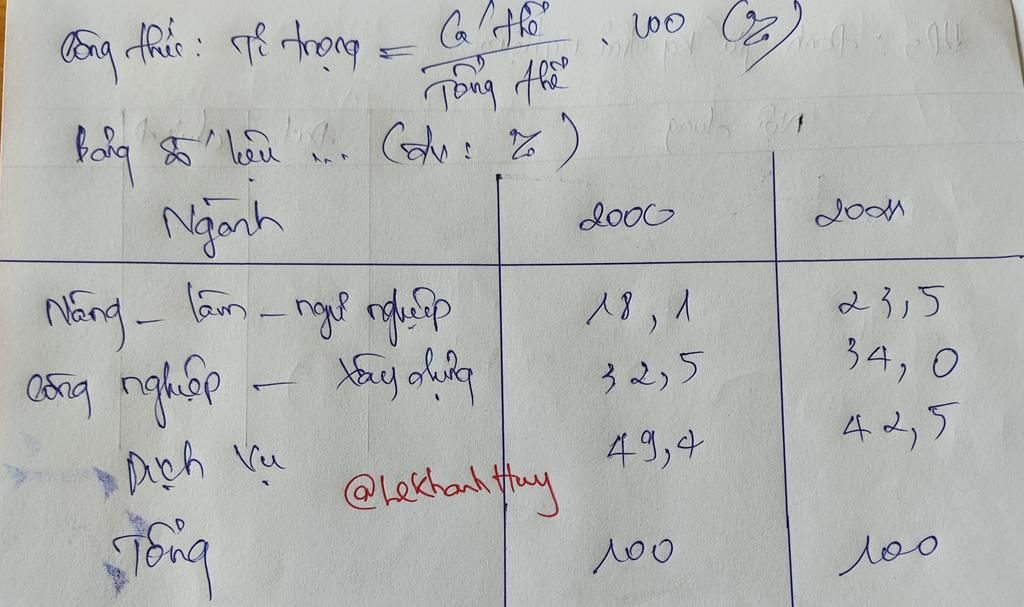 Công thức: Tỉ trọng = Cá thể / Tổng thể . 100 (%)
Bảng số liệu ... (đv: %)
Ngành 2000 2021
Nông - lâm - ngư nghiệp 18,1 23,5
Công nghiệp - Xây dựng 32,5 34,0
Dịch vụ 49,4 42,5
@LeKhanhHuy
Tổng 100 100